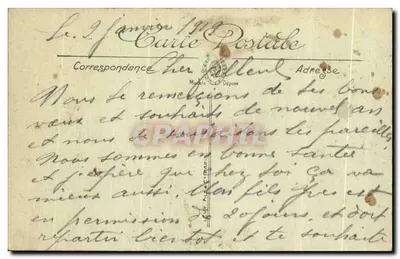 Le 2 Janvier 1919
Carte Postale
Correspondance Adresse
Cher
Nous te remercions de tes bons
vœux et souhaits de nouvel an
et nous te les pareilles
Nous sommes en bonne santée
et j'espère que chez toi ça va
mieux aussi. Mon fils est
en permission de 20 jours, et doit
repartir bientôt, et te souhaite